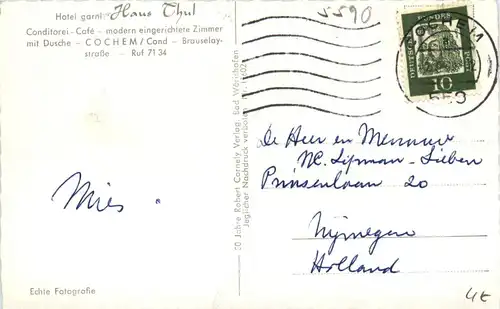 Hotel garni Haus Thul
Conditorei - Café - modern eingerichtete Zimmer
mit Dusche - COCHEM/Cond - Brauselay-
straße - Ruf 71 34
5590
DEUTSCHE BUNDESPOST
10
De Heer en Mevrouw
Lipman - Lieben
Prinsenlaan 20
Nijmegen
Holland
Mies
50 Jahre Robert Cornely Verlag, Bad Wörishofen
Jeglicher Nachdruck verboten
Echte Fotografie
4E